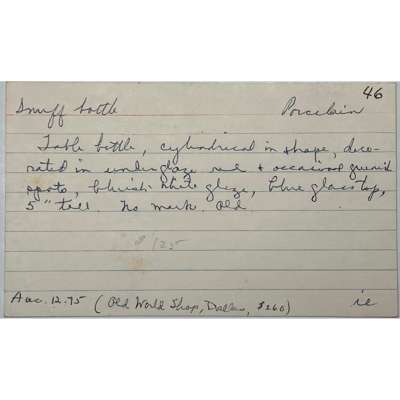 46
Snuff bottle Porcelain
Table bottle, cylindrical in shape, deco-
rated in underglaze red & occasional greenish
spots, bluish white glaze, blue glass top,
5" tall. No mark. Old.
$125
12.75 (Old World Shop, Dallas, $260) ie